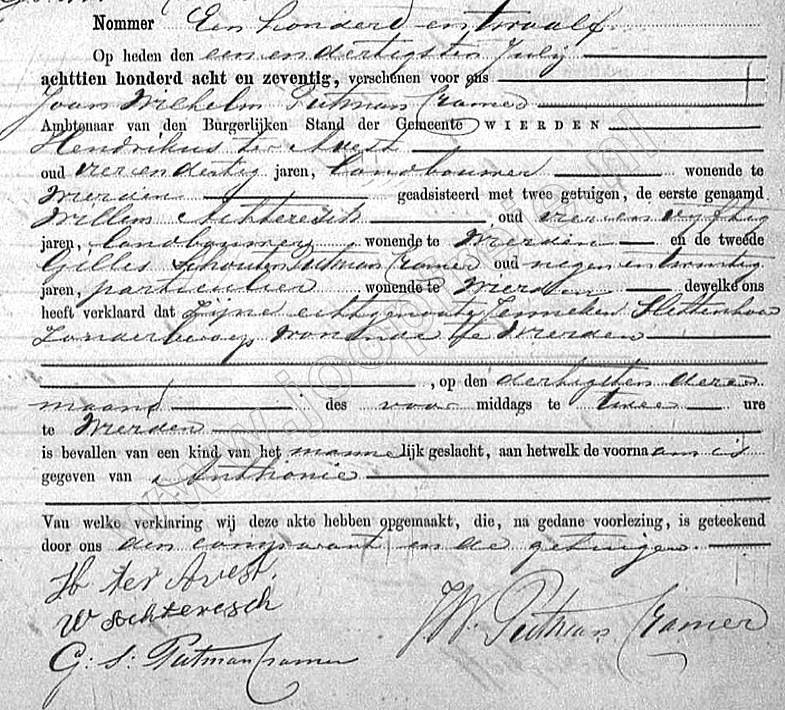 Nommer Een honderd en twaalf
Op heden den een en dertigsten July
achttien honderd acht en zeventig, verschenen voor ons
Joan Wilhelm Putman Cramer
Ambtenaar van den Burgerlijken Stand der Gemeente WIERDEN
Hendrikus ter Avest
oud vier en dertig jaren, landbouwer wonende te
Wierden geadsisteerd met twee getuigen, de eerste genaamd
Willem Achteresch oud vier en vyftig
jaren, landbouwer, wonende te Wierden en de tweede
Gilles Schouten Putman Cramer oud negen en twintig
jaren, particulier wonende te Wierden dewelke ons
heeft verklaard dat Zyne echtgenoote Janneken Slettenhaar
Zonder beroep, wonende te Wierden
, op den dertigsten dezer
maand des voor middags te twee ure
te Wierden
is bevallen van een kind van het mannelijk geslacht, aan hetwelk de voornaam is
gegeven van Anthonie
Van welke verklaring wij deze akte hebben opgemaakt, die, na gedane voorlezing, is geteekend
door ons den comparant en de getuigen.
H ter Avest.
W Achteresch
JW. Putman Cramer
G: S: Putman Cramer